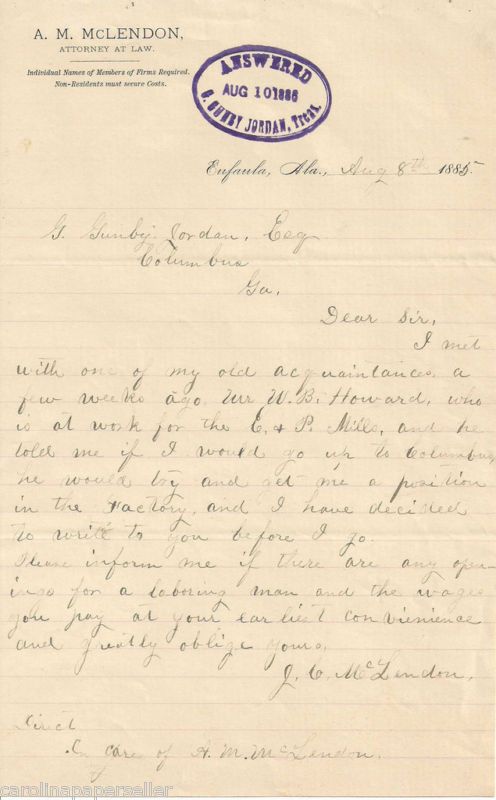 A. M. McLENDON,
ATTORNEY AT LAW.
Individual Names of Members of Firms Required.
Non-Residents must secure Costs.
ANSWERED
AUG 10 1886
G. GUNBY JORDAN, Treas.
Eufaula, Ala., Aug 8th 1885.
G. Gunby Jordan, Esq
Columbus
Ga.
Dear Sir,
I met
with one of my old acquaintances a
few weeks ago, Mr W. B. Howard, who
is at work for the E. & P. Mills, and he
told me if I would go up to Columbus,
he would try and get me a position
in the Factory, and I have decided
to write to you before I go.
Please inform me if there are any open-
ings for a laboring man and the wages
you pay at your earliest convinience
and greatly oblige yours,
J. C. McLendon.
Direct
In care of A. M. McLendon.
carolinapaperseller